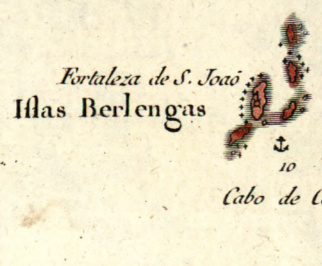 Fortaleza de S. Joaõ
Islas Berlengas
10
Cabo de